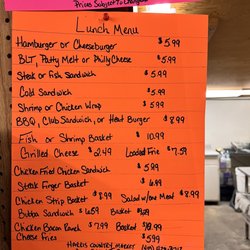 Prices Subject To Change
Lunch Menu
Hamburger or Cheeseburger $5.99
BLT, Patty Melt or Philly Cheese $5.99
Steak or Fish Sandwich $5.99
Cold Sandwich $5.99
Shrimp or Chicken Wrap $5.99
BBQ, Club Sandwich, or Hout Burger $8.99
Fish or Shrimp Basket $10.99
Grilled Cheese $2.49 Loaded Frie $7.59
Chicken Fried Chicken Sandwich $5.99
Steak Finger Basket $6.99
Chicken Strip Basket $8.99 Salad w/ Meat $8.99
Bubba Sandwich Basket
Chicken Bacon Ranch $7.99 Basket
Cheese Fries $5.99
Harris Country Market